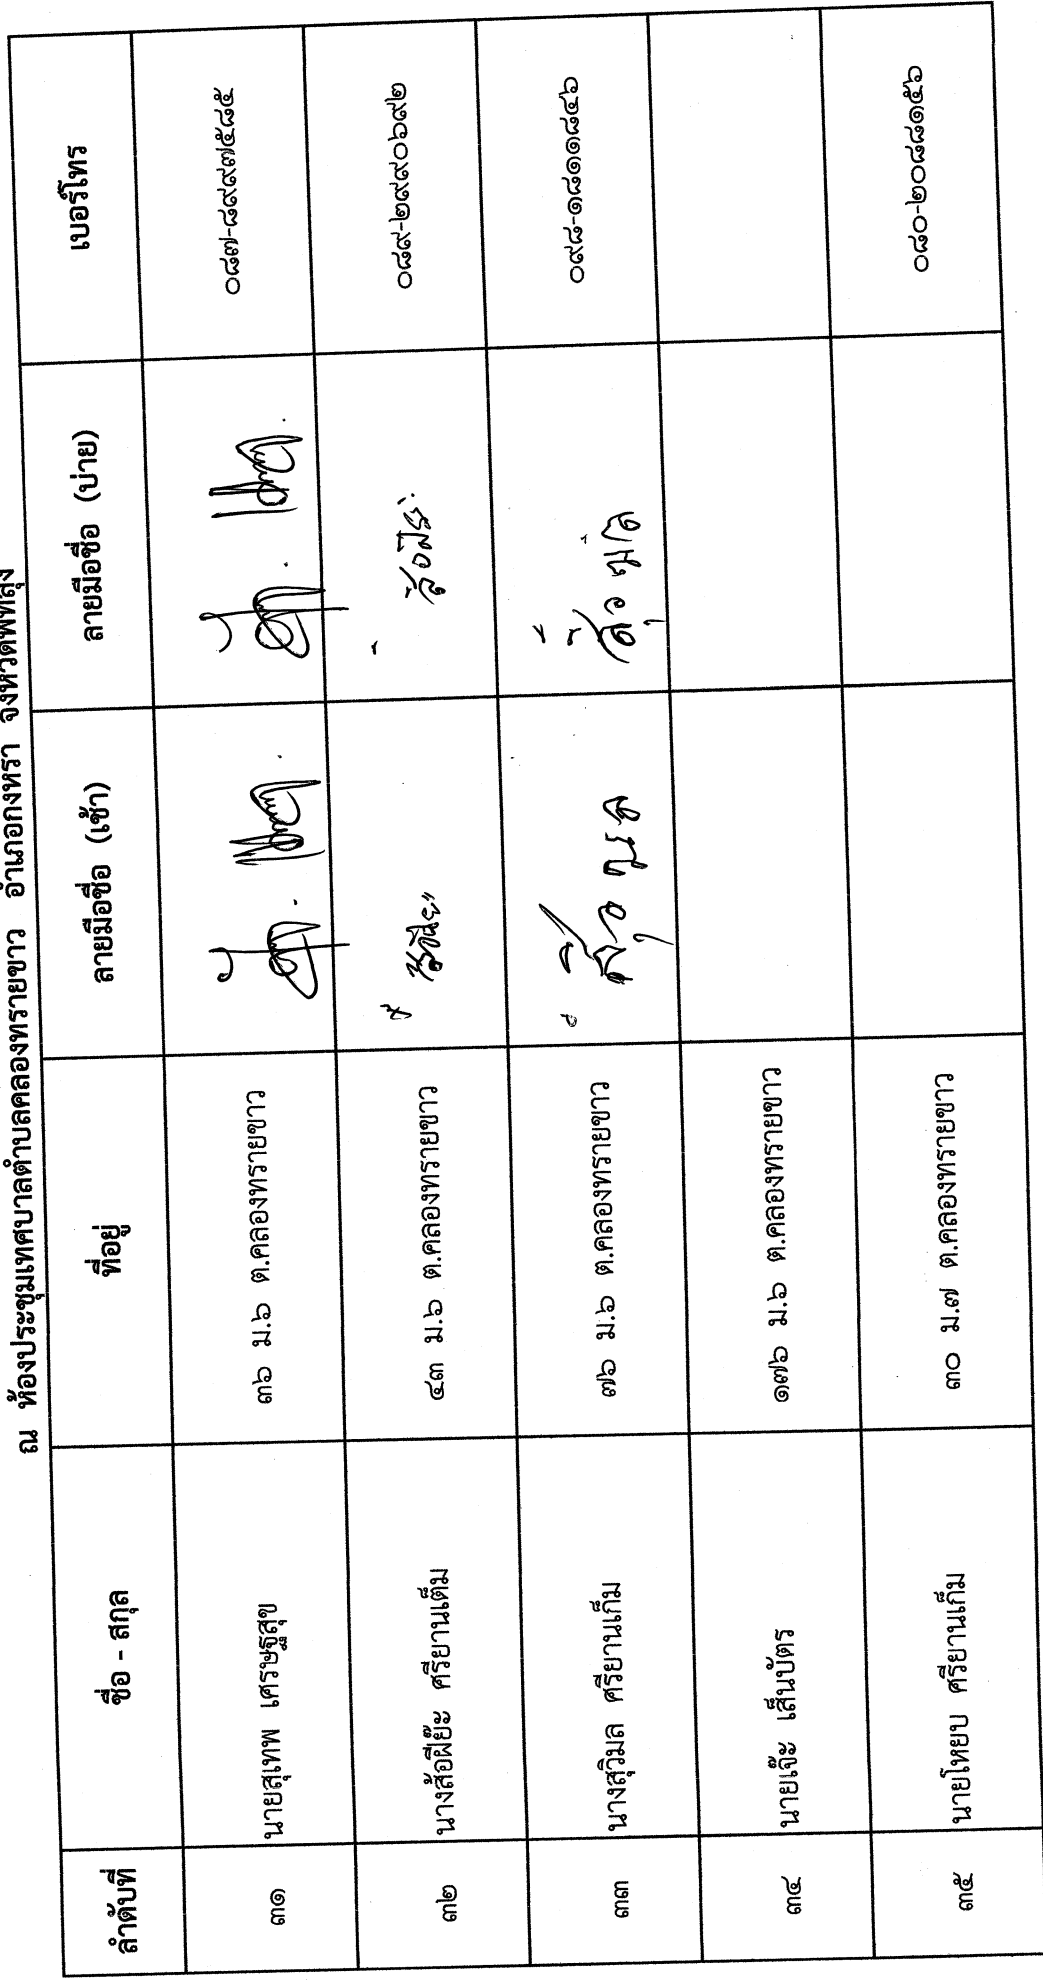 ณ ห้องประชุมเทศบาลตำบลคลองทรายขาว อำเภอกงหรา จังหวัดพัทลุง
ลำดับที่ ชื่อ - สกุล ที่อยู่ ลายมือชื่อ (เช้า) ลายมือชื่อ (บ่าย) เบอร์โทร
๓๑ นายสุเทพ เศรษฐสุข ๓๖ ม.๖ ต.คลองทรายขาว ๐๘๗-๘๙๙๗๕๘๕
๓๒ นางส้อฝีย๊ะ ศรียานเต็ม ๔๓ ม.๖ ต.คลองทรายขาว ๐๘๙-๒๙๙๐๖๙๒
๓๓ นางสุวิมล ศรียานเก็ม ๗๖ ม.๖ ต.คลองทรายขาว ๐๙๘-๑๘๑๑๘๔๖
๓๔ นายเจ๊ะ เส็นบัตร ๑๗๖ ม.๖ ต.คลองทรายขาว
๓๕ นายโหยบ ศรียานเก็ม ๓๐ ม.๗ ต.คลองทรายขาว ๐๘๐-๒๐๘๘๑๕๖